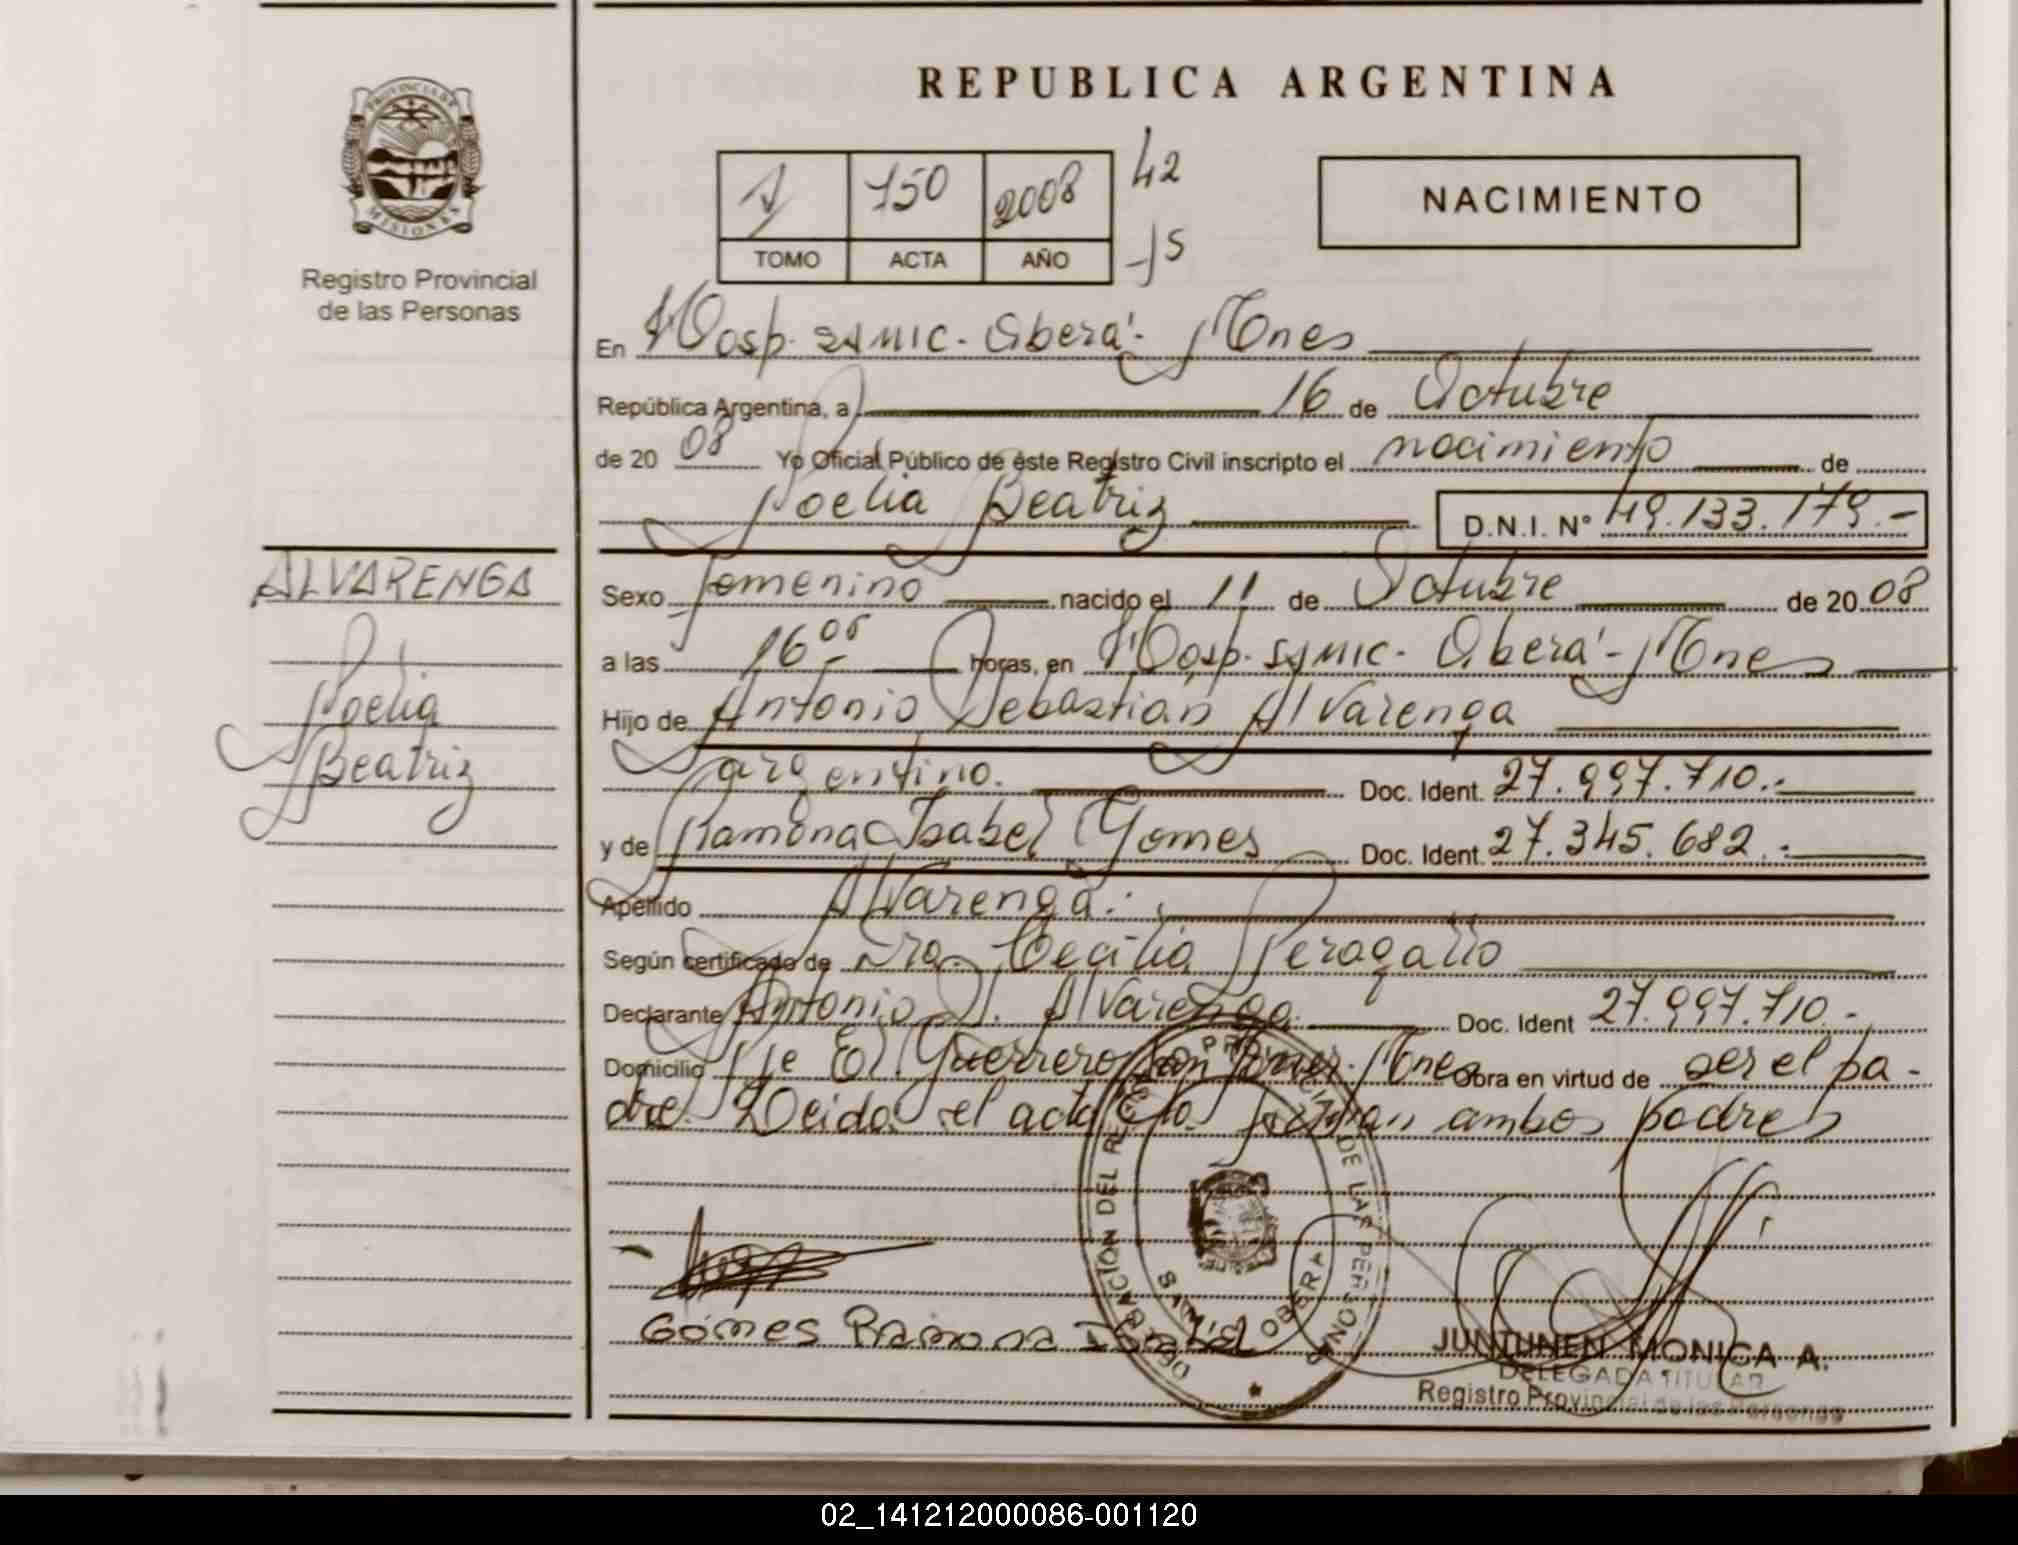 PROVINCIA DE
MISIONES
Registro Provincial
de las Personas
ALVARENGA
Noelia
Beatriz
REPUBLICA ARGENTINA
150 2008 42
TOMO ACTA AÑO 15
NACIMIENTO
En Hosp. SAMIC. Oberá - Mnes
República Argentina, a 16 de Octubre
de 20 08 Yo Oficial Público de éste Registro Civil inscripto el nacimiento de
Noelia Beatriz D.N.I. Nº 49.133.179.-
Sexo femenino nacido el 11 de Octubre de 20 08
a las 16 horas, en Hosp. SAMIC. Oberá - Mnes
Hijo de Antonio Sebastian Alvarenga
argentino. Doc. Ident. 27.997.710.-
y de Ramona Isabel Gomes Doc. Ident. 27.345.682.-
Apellido Alvarenga.
Según certificado de Dra. Cecilia Peragallo
Declarante Antonio S. Alvarenga Doc. Ident 27.997.710.-
Domicilio Guerrero Mnes Obra en virtud de ser el pa-
dre. Leida el acta firman ambos padres
DELEGACION DEL REG. PROVINCIAL DE LAS PERSONAS
SAMIC OBERA
Gómes Ramona Isabel
JUNTUNEN MONICA A.
DELEGADA TITULAR
Registro Provincial de las Personas
02_141212000086-001120